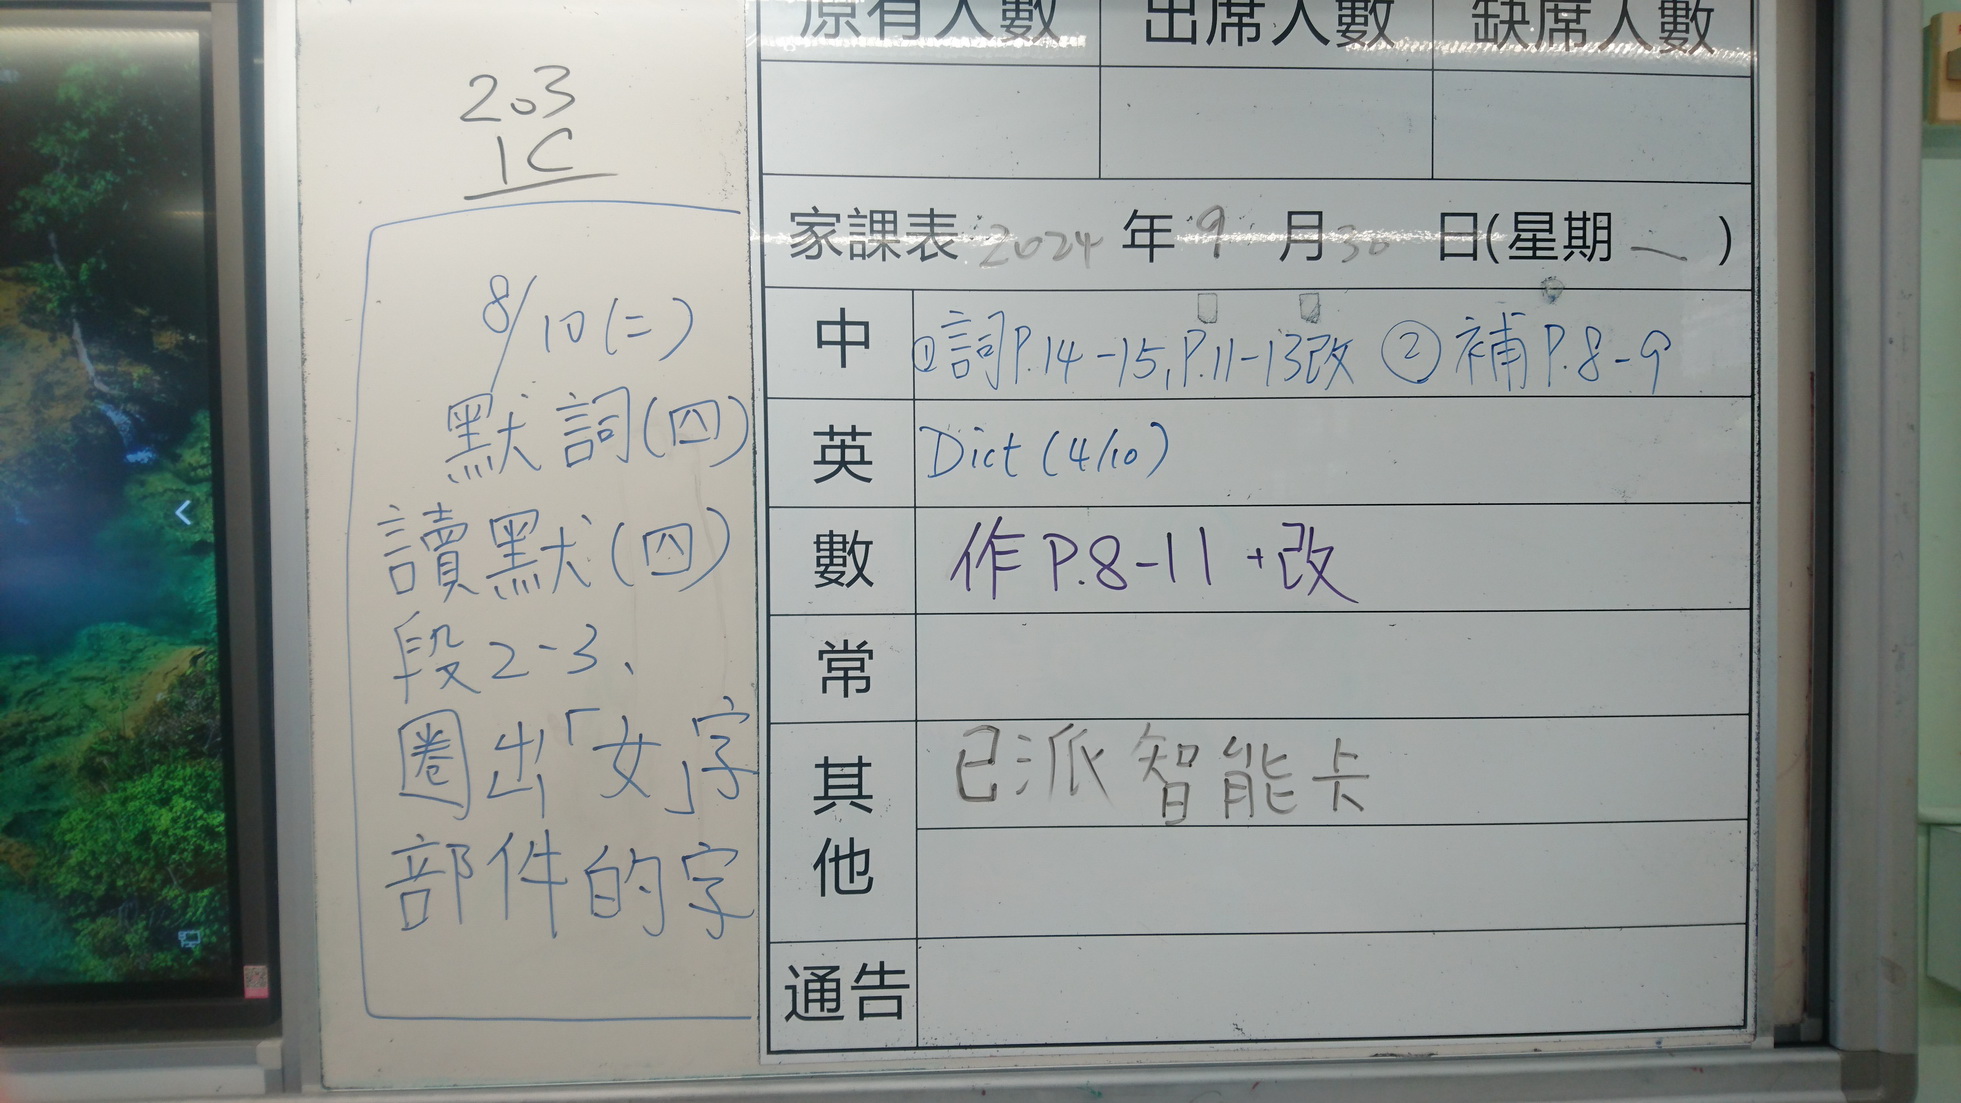 203
1C
8/10(二)
默詞(四)
讀默(四)
段2-3、
圈出「女」字
部件的字
原有人數 出席人數 缺席人數
家課表 2024 年 9 月 30 日(星期 一 )
中 ①詞P.14-15,P.11-13改 ②補P.8-9
英 Dict (4/10)
數 作P.8-11+改
常
其他 已派智能卡
通告